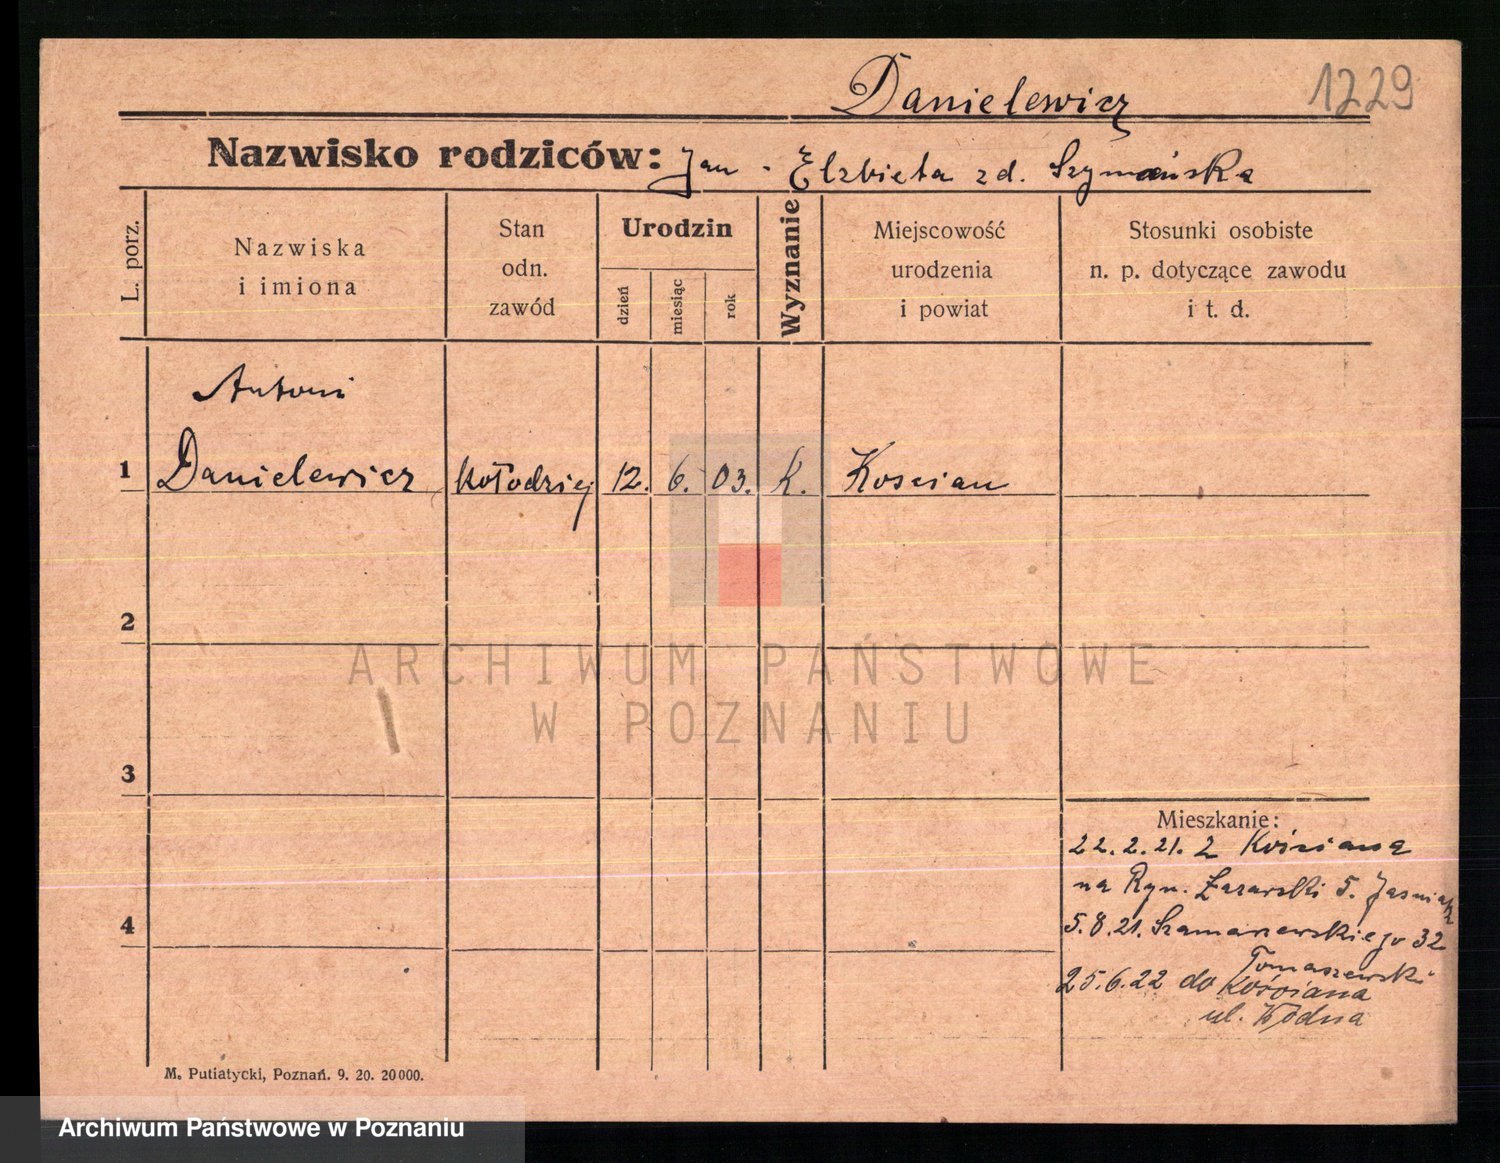 Danielewicz
1229
Nazwisko rodziców: Jan - Elzbieta zd. Szymańska
L. porz.
Nazwiska
i imiona
Stan
odn.
zawód
Urodzin
dzień
miesiąc
rok
Wyznanie
Miejscowość
urodzenia
i powiat
Stosunki osobiste
n. p. dotyczące zawodu
i t. d.
Antoni
1 Danielewicz Kołodziej 12. 6. 03. K. Koscian
2
ARCHIWUM PAŃSTWOWE
W POZNANIU
3
Mieszkanie:
22.2.21. z Kościana
na Ryn. Łazarski 5. Jasniak
4
5.8.21. Szamarzewskiego 32
Tomaszewski
25.6.22 do Kościana
ul.
M. Putiatycki, Poznań. 9. 20. 20000.
Archiwum Państwowe w Poznaniu